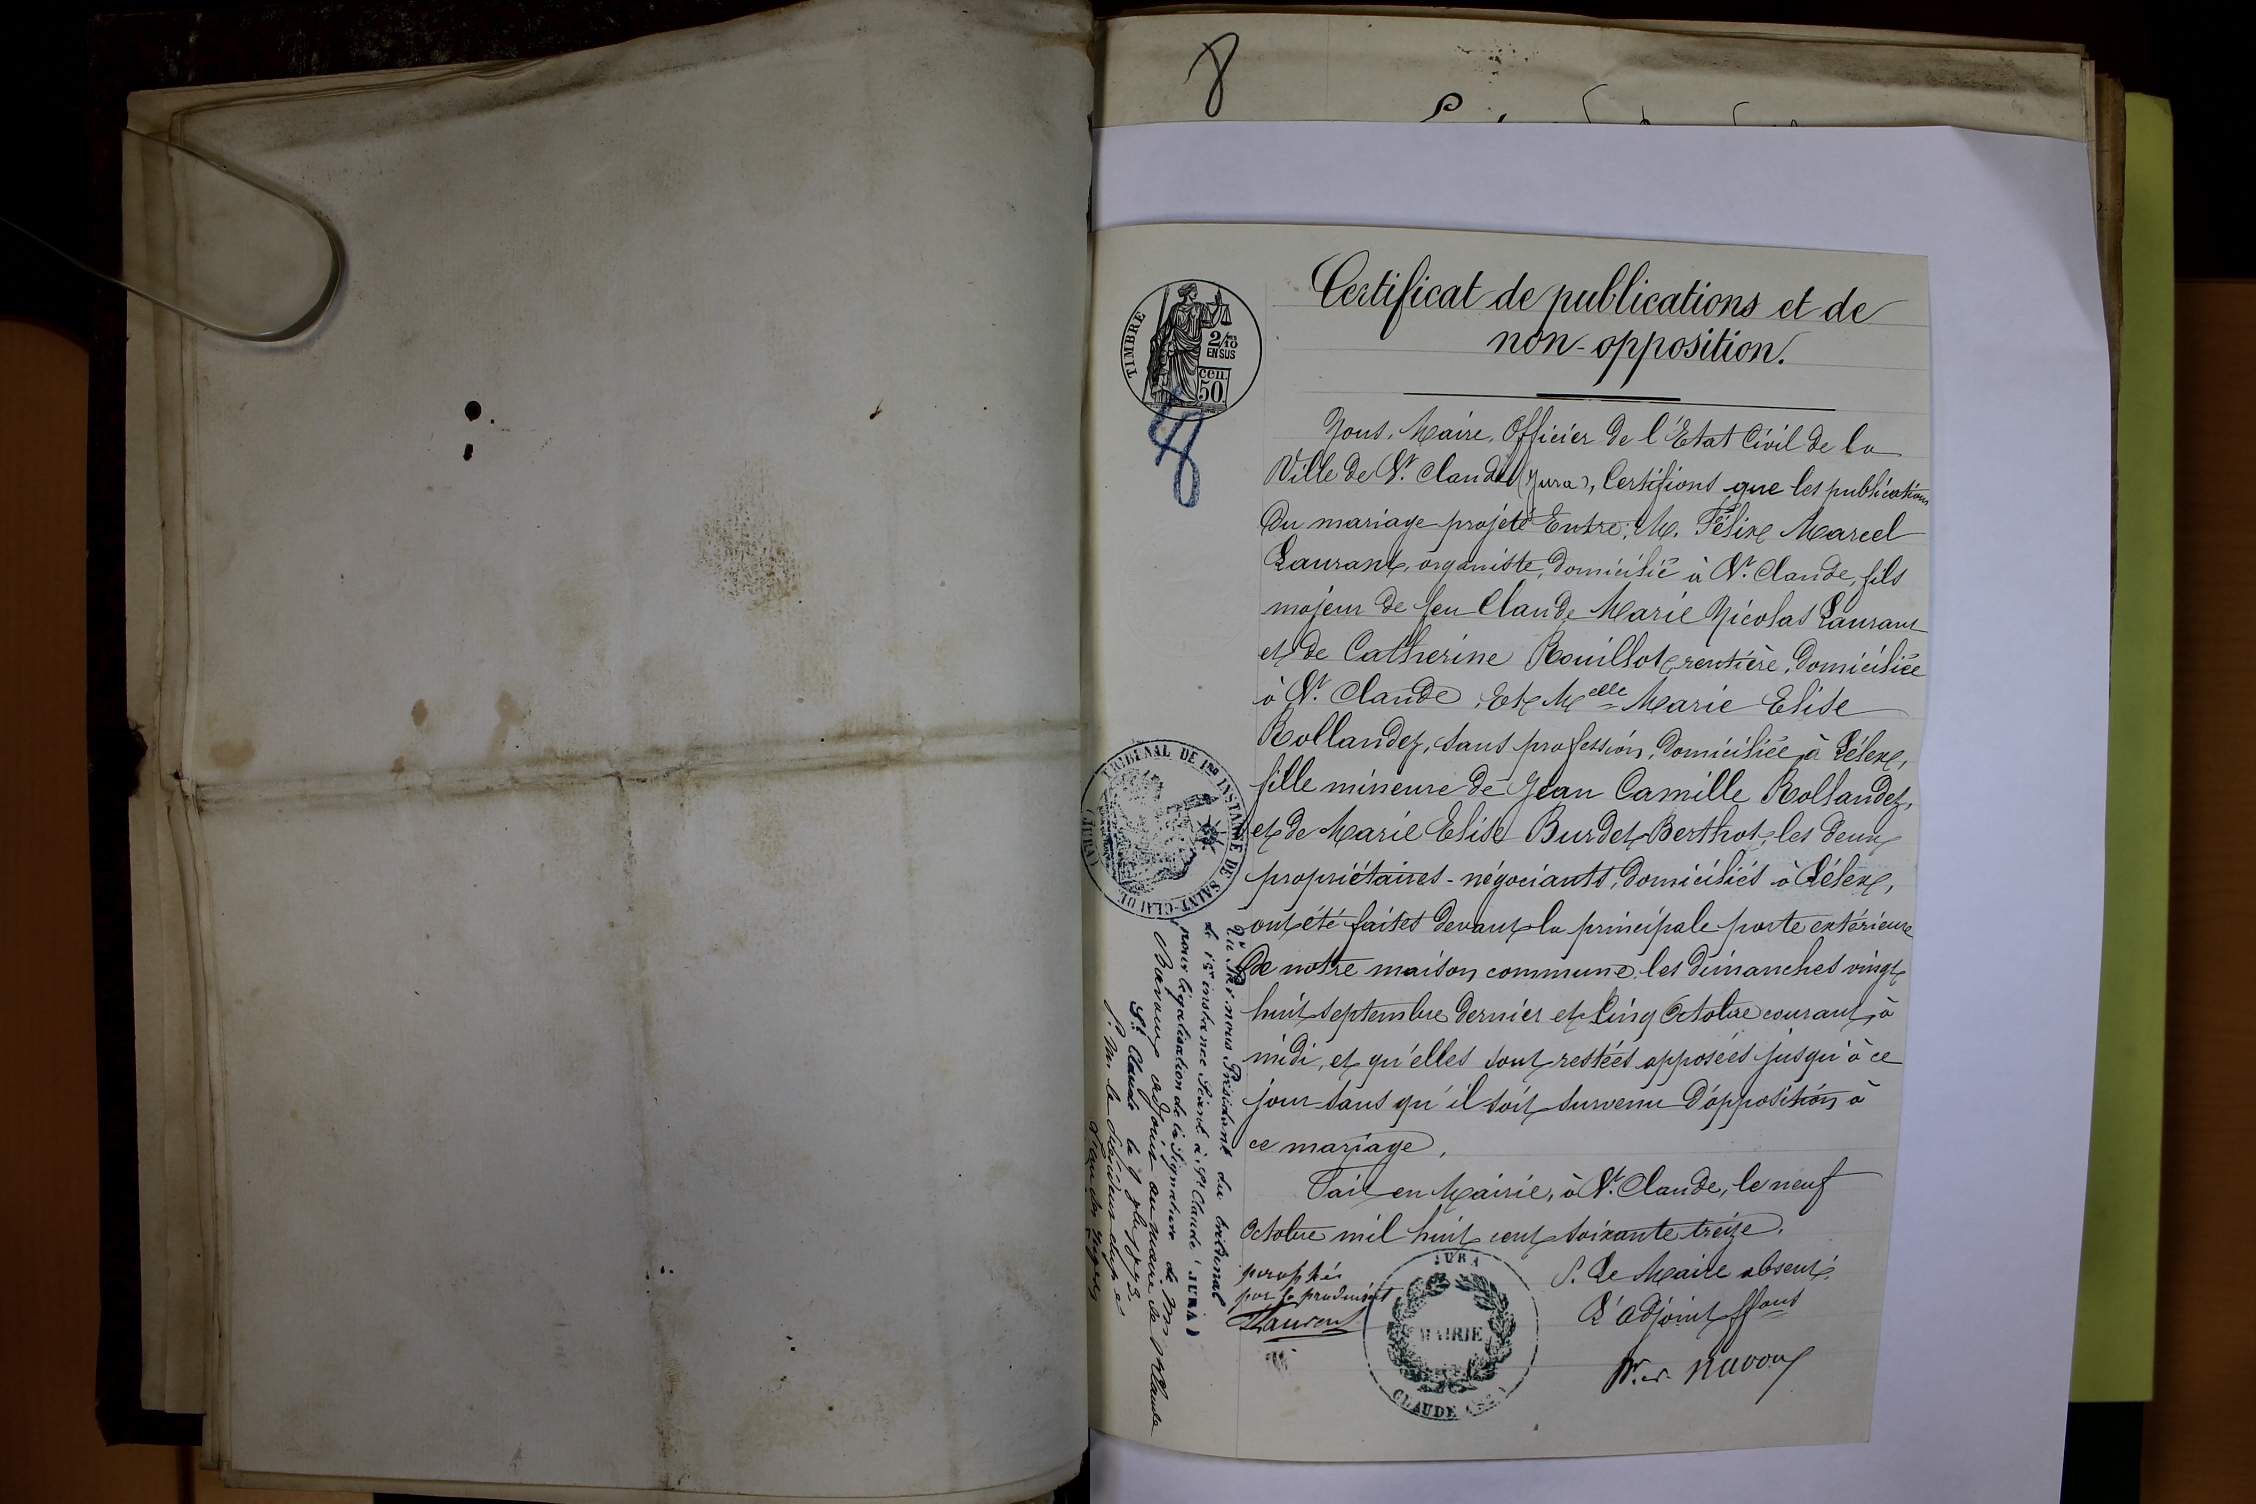 8
Certificat de publications et de
non-opposition.
TIMBRE
2/10
EN SUS
50 cen.
8
Nous, Maire, Officier de l'Etat Civil de la
Ville de St. Claude (Jura), Certifions que les publications
du mariage projeté Entre: M. Félix Marcel
Laurant, organiste, domicilié à St. Claude, fils
majeur de feu Claude Marie Nicolas Laurant
et de Catherine Rouillot, rentière, domiciliée
à St. Claude, Et Melle Marie Elise
Rollandez, sans profession, domiciliée à Lélex,
fille mineure de Jean Camille Rollandez,
et de Marie Elise Burdet Berthot, les deux
propriétaires-négociants, domiciliés à Lélex,
ont été faites devant la principale porte extérieure
de notre maison commune, les dimanches vingt
huit septembre dernier et Cinq Octobre courant, à
midi, et qu'elles sont restées apposées jusqu'à ce
jour sans qu'il soit survenu d'opposition à
ce mariage.
Fait en Mairie, à St. Claude, le neuf
Octobre mil huit cent soixante treize.
P. Le Maire absent,
L'adjoint ffons
paraphé
par le produisant
Laurent
JURA
MAIRIE
CLAUDE
TRIBUNAL DE 1re INSTANCE DE SAINT-CLAUDE
(JURA)
Vu par nous Président du tribunal
de 1re instance Séant à St Claude (JURA)
pour légalisation de la Signature de Mr
adjoint au maire de St Claude
St Claude le 9